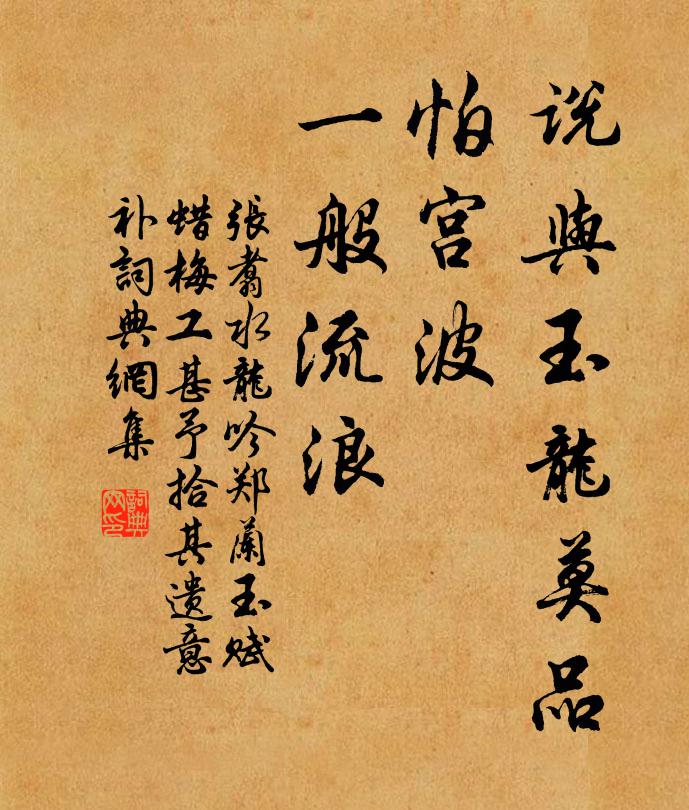 说與玉龍莫品
怕宫波
一般流浪
張翥水龍吟郑蘭玉赋
蜡梅工甚予拾其遗意
补詞典網集
詞典网印